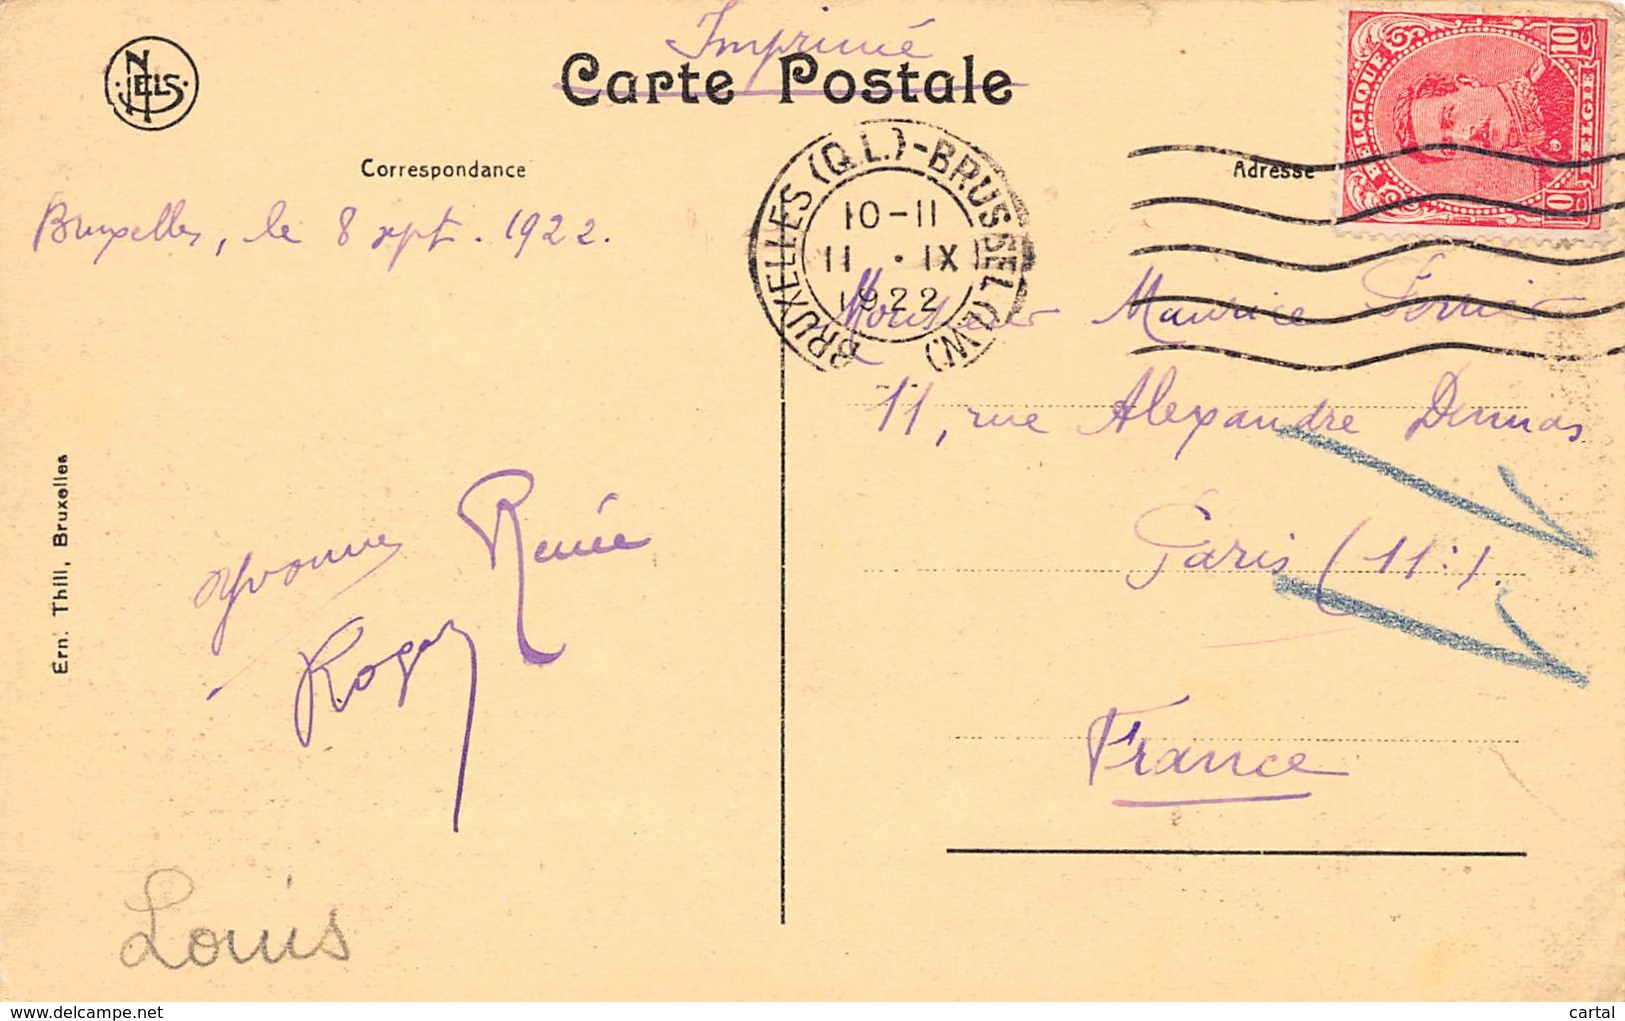 Imprimé
Carte Postale
NELS
Correspondance
Adresse
BELGIQUE
BELGIË
10 10
BRUXELLES (Q.L.)-BRUSSEL (L.W.)
10-11
11 • IX
1922
Bruxelles, le 8 sept. 1922.
Monsieur Maurice Ferrier
11, rue Alexandre Dumas
Paris (11e).
France
Yvonne Renée
Roger
Louis
Ern. Thill, Bruxelles
www.delcampe.net
cartal